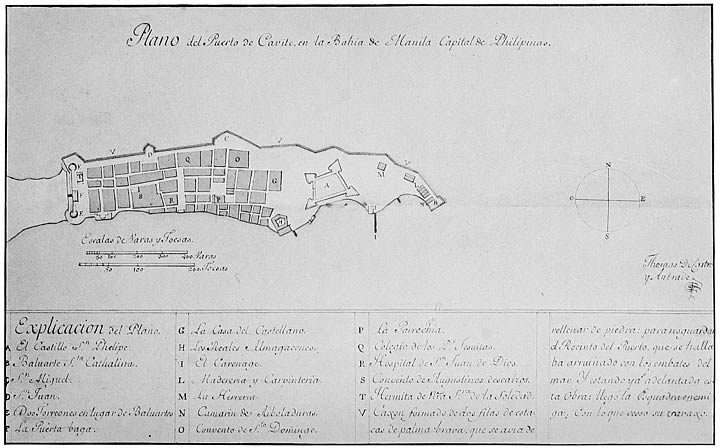 Plano del Puerto de Cavite, en la Bahia de Manila Capital de Philipinas.
V
D
C
V
V
E
T
F
E
I
S
R
Q
O
P
G
H
A
M
L
B
I
N
O
E
S
Escalas de Varas y Toesas.
50 100 200 300 400 Varas
50 100 200 Toesas
Thomas de Castro
y Andrade
Explicacion del Plano.
A El Castillo Sn. Phelipe.
B Baluarte Sta. Cathalina.
C Sn. Miguel.
D Sn. Juan.
E Dos Torreones en lugar de Baluartes
F La Puerta baga.
G La Casa del Castellano.
H Los Reales Almagacenes.
I El Carenage.
L Madereria y Carpinteria.
M La Herreria.
N Camarin de Arboladuras.
O Convento de Sto. Domingo.
P La Parrochia.
Q Colegio de los Ps. Jesuitas.
R Hospital de Sn. Juan de Dios.
S Convento de Augustinos descalzos.
T Hermita de Ntra. Sra. de la Soledad.
V Caxon formado de dos filas de estacas
de palma brava, que se avia de
rellenar de piedra: para resguardar
el Recinto del Puerto, que se halla
ba arruinado con los embates del
mar. Y estando ya adelantada es
ta Obra; llego la Esquadra enemi
ga; Con lo que cesso su travaxo.